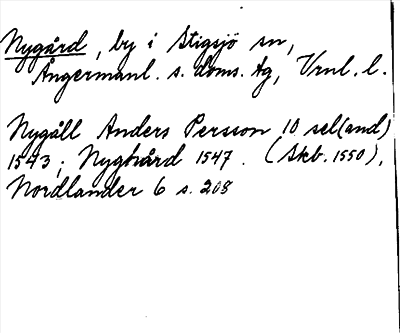 Nygård, by i Stigsjö sn,
Ångermanl. s. doms. tg, Vrnl. l.
Nygåll Anders Persson 10 sel(and)
1543; Nyghård 1547. (Skb. 1550).
Nordlander 6 s. 208